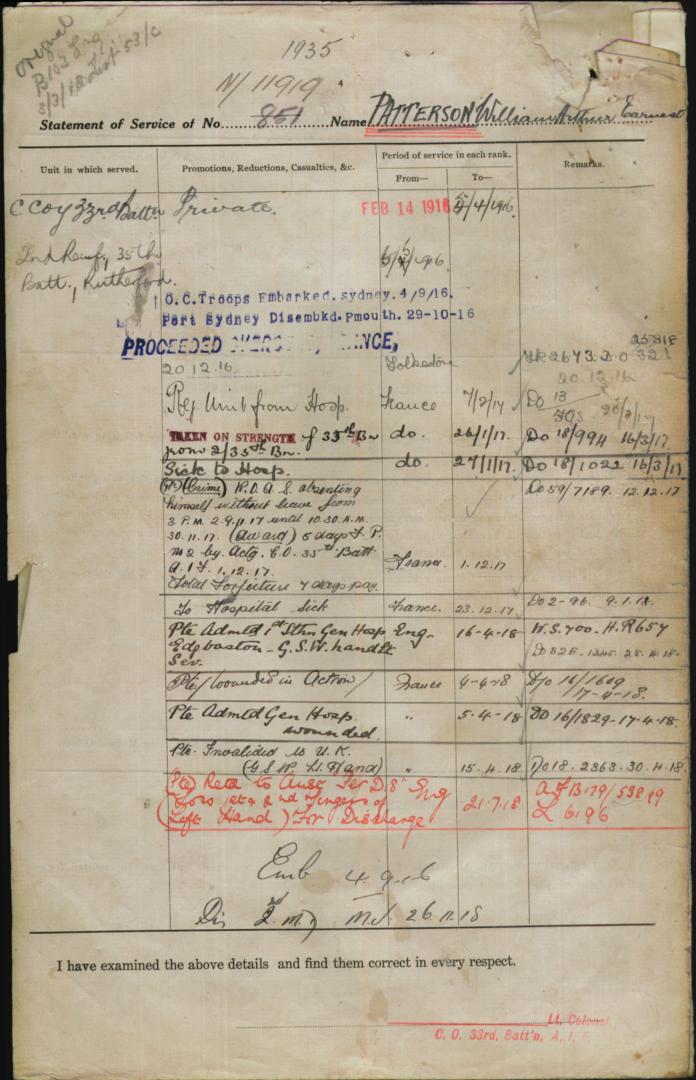 Original
B103
3/3/18
53/C
1935
N/11919
Statement of Service of No. 851 Name PATTERSON William Arthur Earnest
Unit in which served.
Promotions, Reductions, Casualties, &c.
Period of service in each rank.
From—
To—
Remarks.
C Coy 33rd Battn Private. FEB 14 1916 5/4/1916
2nd Reinf, 35th
Batt., Rutherford.
O.C.Troops Embarked. sydney. 4/9/16.
Port Sydney Disembkd. Pmouth. 29-10-16
PROCEEDED OVERSEAS, FRANCE,
20.12.16 Folkestone 2673. D.O. 32
25818
20.12.16
Rej. Unit from Hosp. France 7/2/17 Do 13
TAKEN ON STRENGTH of 33rd Bn do. 26/1/17. Do 18/994 16/3/17.
from 2/35th Bn.
Sick to Hosp. do. 27/1/17. Do 18/1022 16/3/17
(Crime) W.O.A.S. absenting Do 59/7189. 12.12.17
himself without leave from
3 P.M. 29.11.17 until 10.30 A.M.
30.11.17. (Award) 5 days F.P.
No 2 by Actg. C.O. 35th Batt
A.I.F. 1.12.17. France 1.12.17
Total Forfeiture 7 days pay.
To Hospital Sick France. 23.12.17 Do 2-96. 9.1.18.
Pte Admtd 1st Sthn Gen Hosp Eng- 16-4-18 W.S.700-H.R657
Edgbaston - G.S.W. hand Lt 25.4.18.
Sev.
Pte/ wounded in Action/ France 4-4-18 D/o 16/1609
17-4-18.
Pte Admtd Gen Hosp. " 5.4-18 DO 16/1829-17-4-18.
wounded
Pte. Invalided to U.K.
(G.S.W. Lt. Hand) " 15.4.18 Do 18.2363.30.4.18.
(Pte) Retd to Aust Per "D8" Eng 21.7.18 AFB179/538
(Loss 1st & 2nd Fingers of L 6196
Left Hand) For Discharge
Emb 4.9.16
Dis 2nd M.D 26.11.18
I have examined the above details and find them correct in every respect.
Lt. Colonel
C. O. 33rd. Batt'n, A. I. F.